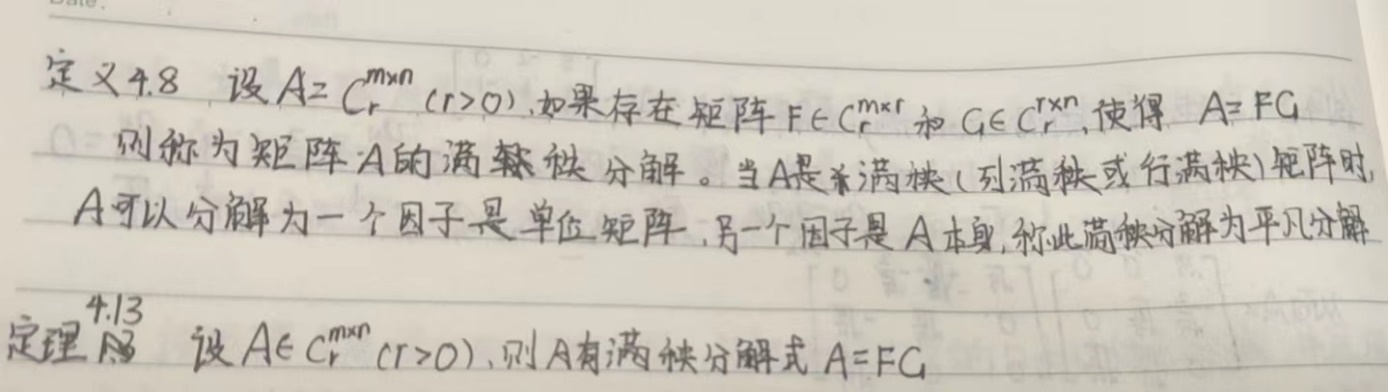 Date.
定义4.8 设A=C_r^{m×n}(r>0),如果存在矩阵F∈C_r^{m×r}和G∈C_r^{r×n},使得 A=FG
则称为矩阵A的满秩分解。当A是满秩(列满秩或行满秩)矩阵时,
A可以分解为一个因子是单位矩阵,另一个因子是A本身,称此满秩分解为平凡分解
定理4.13 设A∈C_r^{m×n}(r>0),则A有满秩分解式A=FG